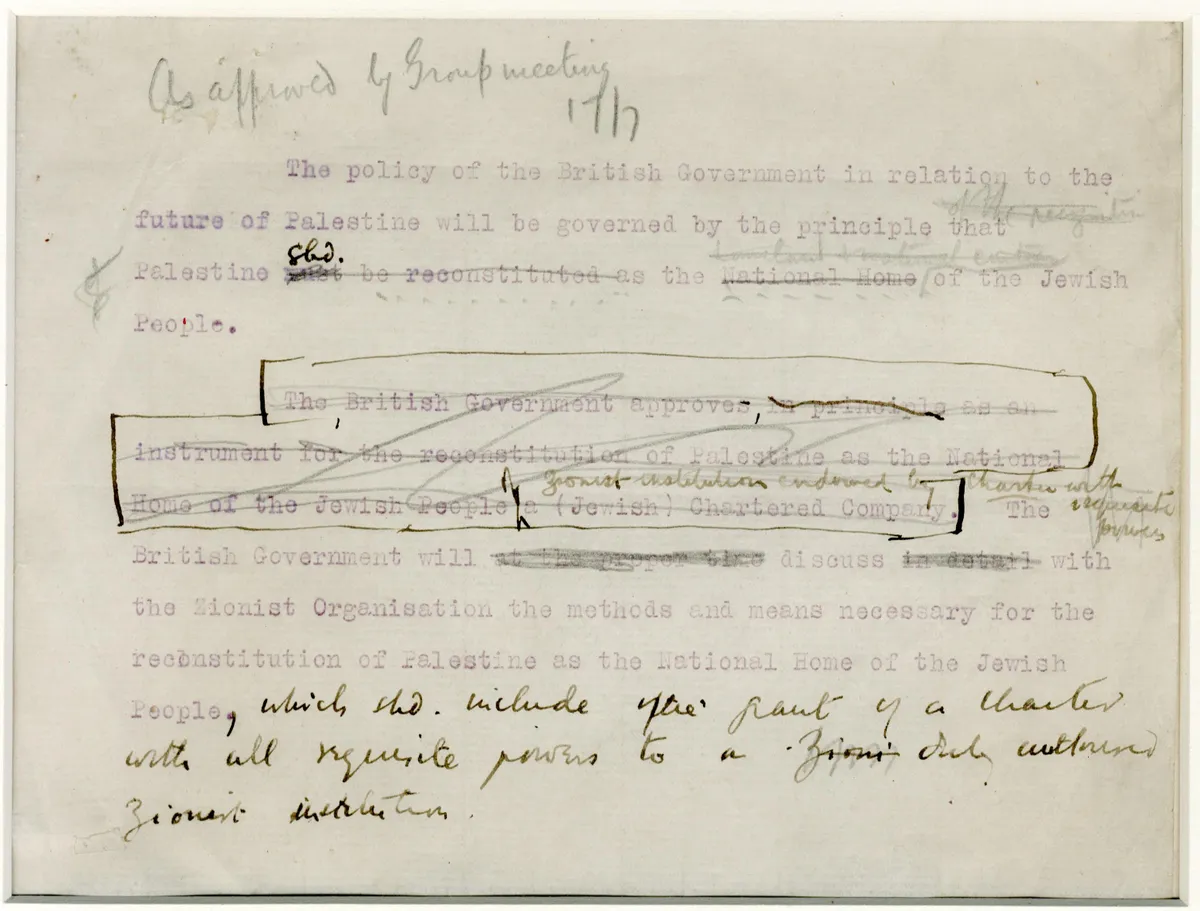 As approved by Group meeting
17/7
The policy of the British Government in relation to the
of the recognition
future of Palestine will be governed by the principle that
shd.
Palestine must be reconstituted as the National Home of the Jewish
People.
The British Government approves, in principle as an
instrument for the reconstitution of Palestine as the National
Zionist institution endowed by Charter with
requisite
powers
Home of the Jewish People, a (Jewish) Chartered Company. The
British Government will at the proper time discuss in detail with
the Zionist Organisation the methods and means necessary for the
reconstitution of Palestine as the National Home of the Jewish
People, which shd. include the grant of a Charter
with all requisite powers to a Zioni duly authorised
Zionist institution.